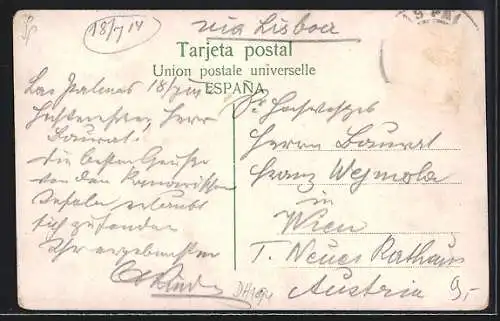 18/7 14
via Lisboa
Tarjeta postal
Union postale universelle
ESPAÑA
Las Palmas 18/VII
Herr
Baurat!
die besten Grüsse
von den Kanarischen
Inseln erlaubt
sich zu senden
Ihr ergebenster
Sr. Hochwohlgeb.
Herrn Baurat
Franz Wejmola
in
Wien
I. Neues Rathaus
Austria
9,-